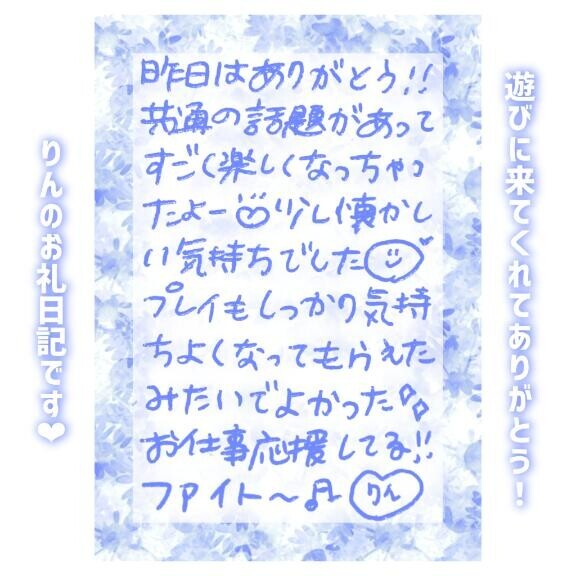 遊びに来てくれてありがとう！
昨日はありがとう!!
共通の話題があって
すごく楽しくなっちゃっ
たよー♡少し懐かし
い気持ちでした
プレイもしっかり気持
ちよくなってもらえた
みたいでよかった
お仕事応援してる!!
ファイト〜♫ りん
りんのお礼日記です❤